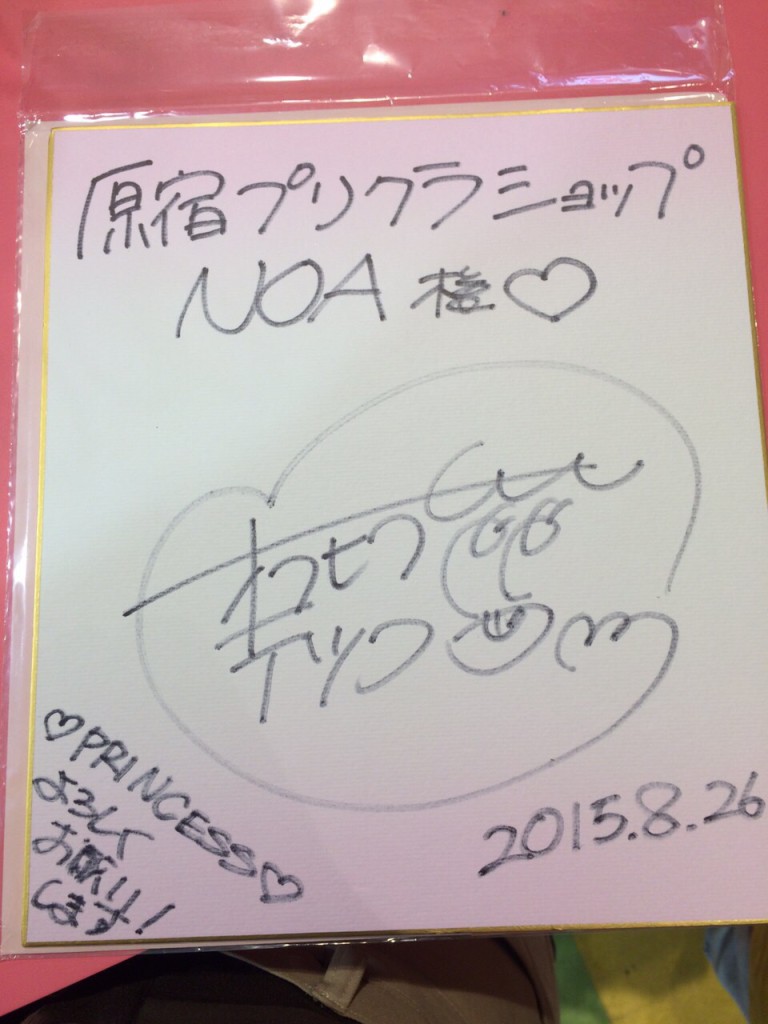 原宿プリクラショップ
NOA 様♡
♡PRINCESS♡
よろしく
お願い
します!
2015.8.26